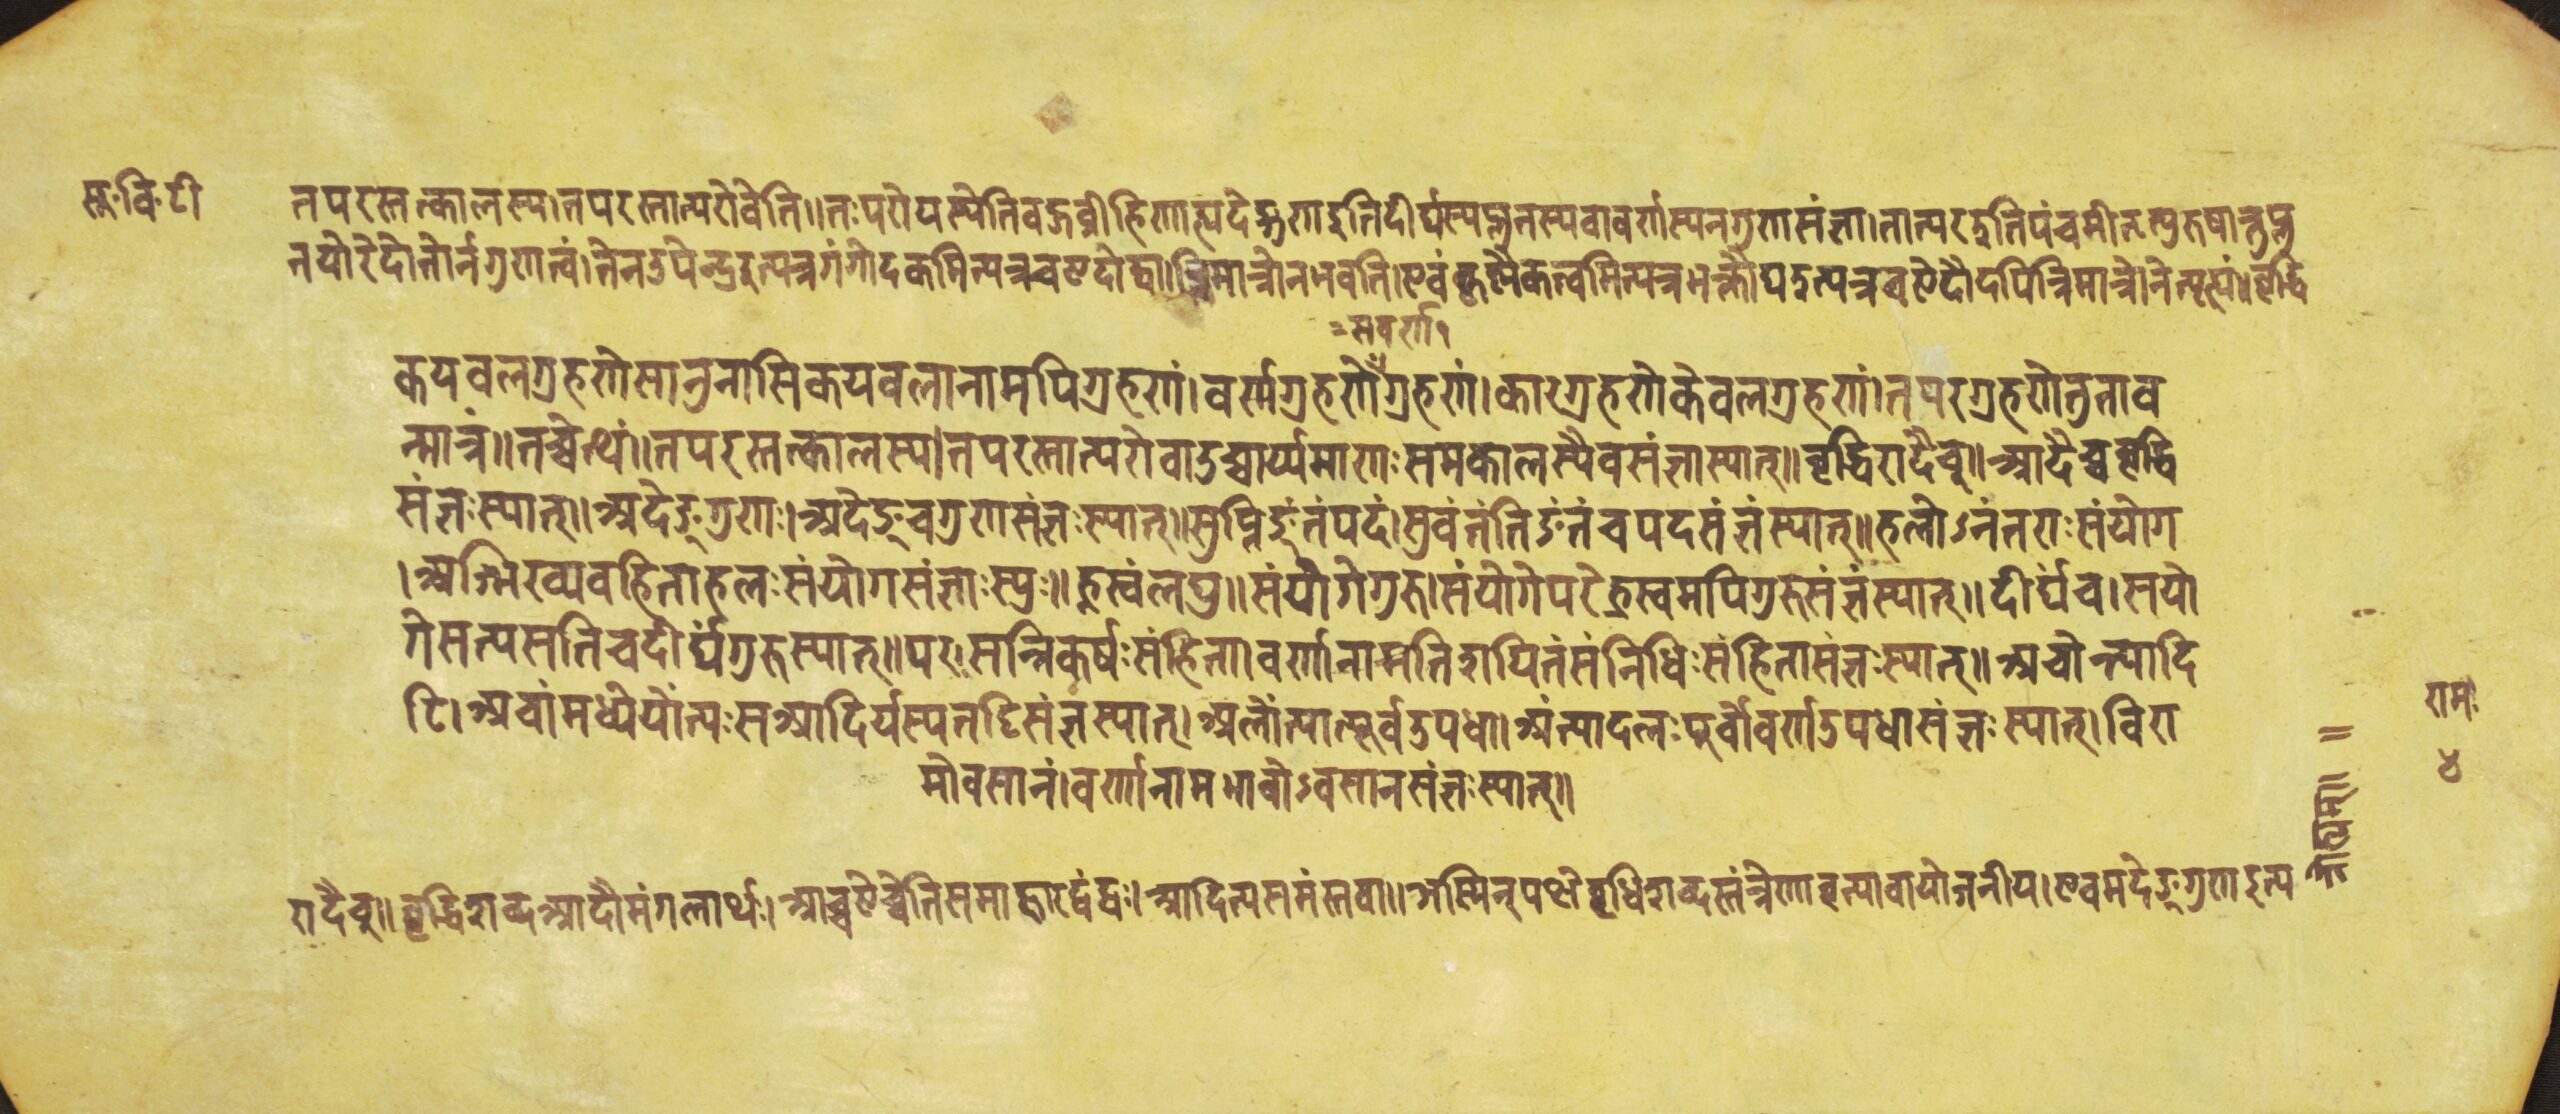 सू॰ वि॰ टी
तपरस्तत्कालस्य।तपरस्तात्परोवेति॥तःपरोयस्येतिबहुव्रीहिणात्यदेङ्गुणइतिदीर्घस्यप्लुतस्यवावर्णस्यनगुणसंज्ञा।तात्परइतिपंचमीतत्पुरुषात्तुप्लु
तयोरेदोतोर्नगुणत्वं।तेनउपेन्द्रइत्यत्रगंगोदकमित्यत्रचएदोद्वा॥त्रिमात्रोनभवति।एवंकृष्णैकत्वमित्यत्र
=सवर्णा१
कयवलग्रहणेसानुनासिकयवलानामपिग्रहणं।वर्णग्रहणेग्रहणं।कारग्रहणेकेवलग्रहणं।तपरग्रहणेतुताव
न्मात्रं॥तच्चेत्थं॥तपरस्तत्कालस्य।तपरस्तात्परोवाउच्चार्य्यमाणःसमकालस्यैवसंज्ञास्यात्॥वृद्धिरादैच्॥आदैच्चवृद्धि
संज्ञःस्यात्॥अदेङ्गुणः।अदेङ्चगुणसंज्ञःस्यात्॥सुप्तिङंतंपदं।सुवंतंतिङंतंचपदसंज्ञंस्यात्॥हलोऽनंतराःसंयोग
।अज्भिरव्यवहिताहलःसंयोगसंज्ञाःस्युः॥ह्रस्वंलघु॥संयोगेगुरु।संयोगेपरेह्रस्वमपिगुरुसंज्ञंस्यात्॥दीर्घंच।सयो
गेसत्यसतिचदीर्घंगुरुस्यात्॥परःसन्निकर्षःसंहिता।वर्णानामतिशयितंसंनिधिःसंहितासंज्ञःस्यात्॥अचोन्त्यादि
टि।अचांमध्येयोंत्यःसआदिर्यस्यतट्टिसंज्ञस्यात्।अलोंत्यात्पूर्वउपधा।अंत्यादलःपूर्वोवर्णउपधासंज्ञःस्यात्।विरा
मोवसानं।वर्णानामभावोऽवसानसंज्ञःस्यात्॥
रामः
४
रादैच्॥वृद्धिशब्दआदौमंगलार्थः।आच्चऐच्चेतिसमाहारद्वंद्वः।आदित्यसमंस्तवा॥अस्मिन्पक्षेवृधिशब्दस्तंत्रेणावृत्यावायोजनीय।एवमदेङ्गुणइत्य